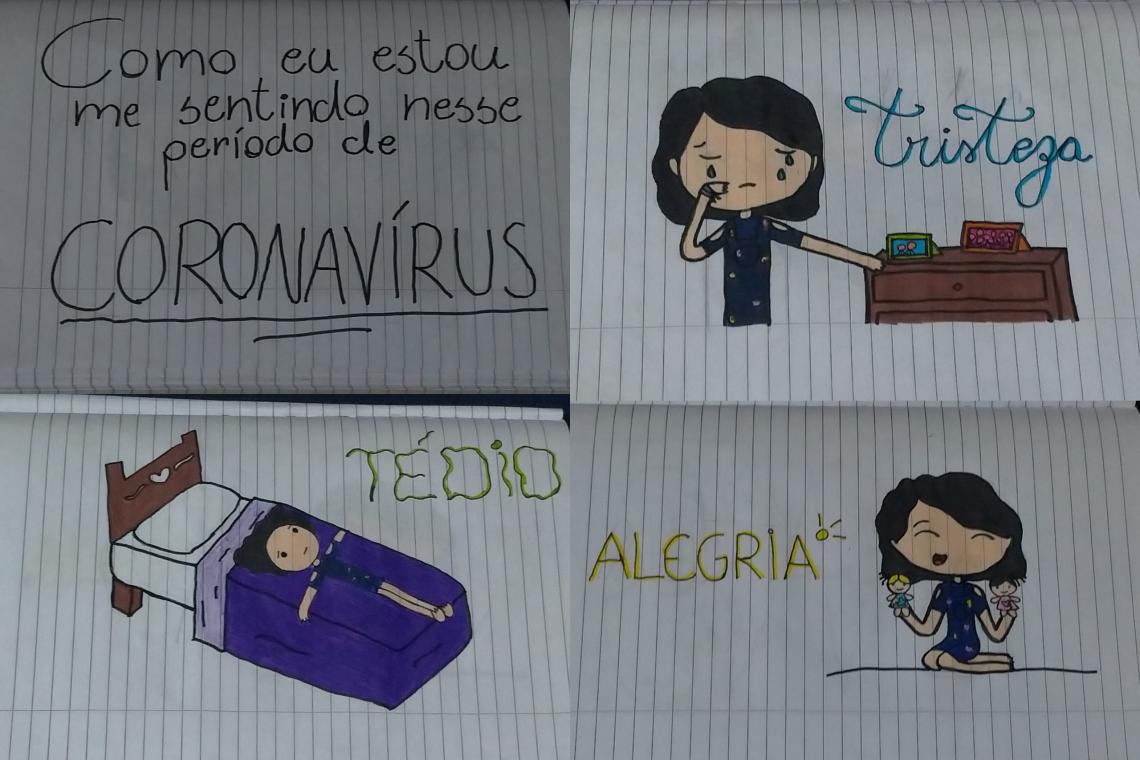 Como eu estou
me sentindo nesse
período de
CORONAVÍRUS
Tristeza
TÉDiO
ALEGRiA